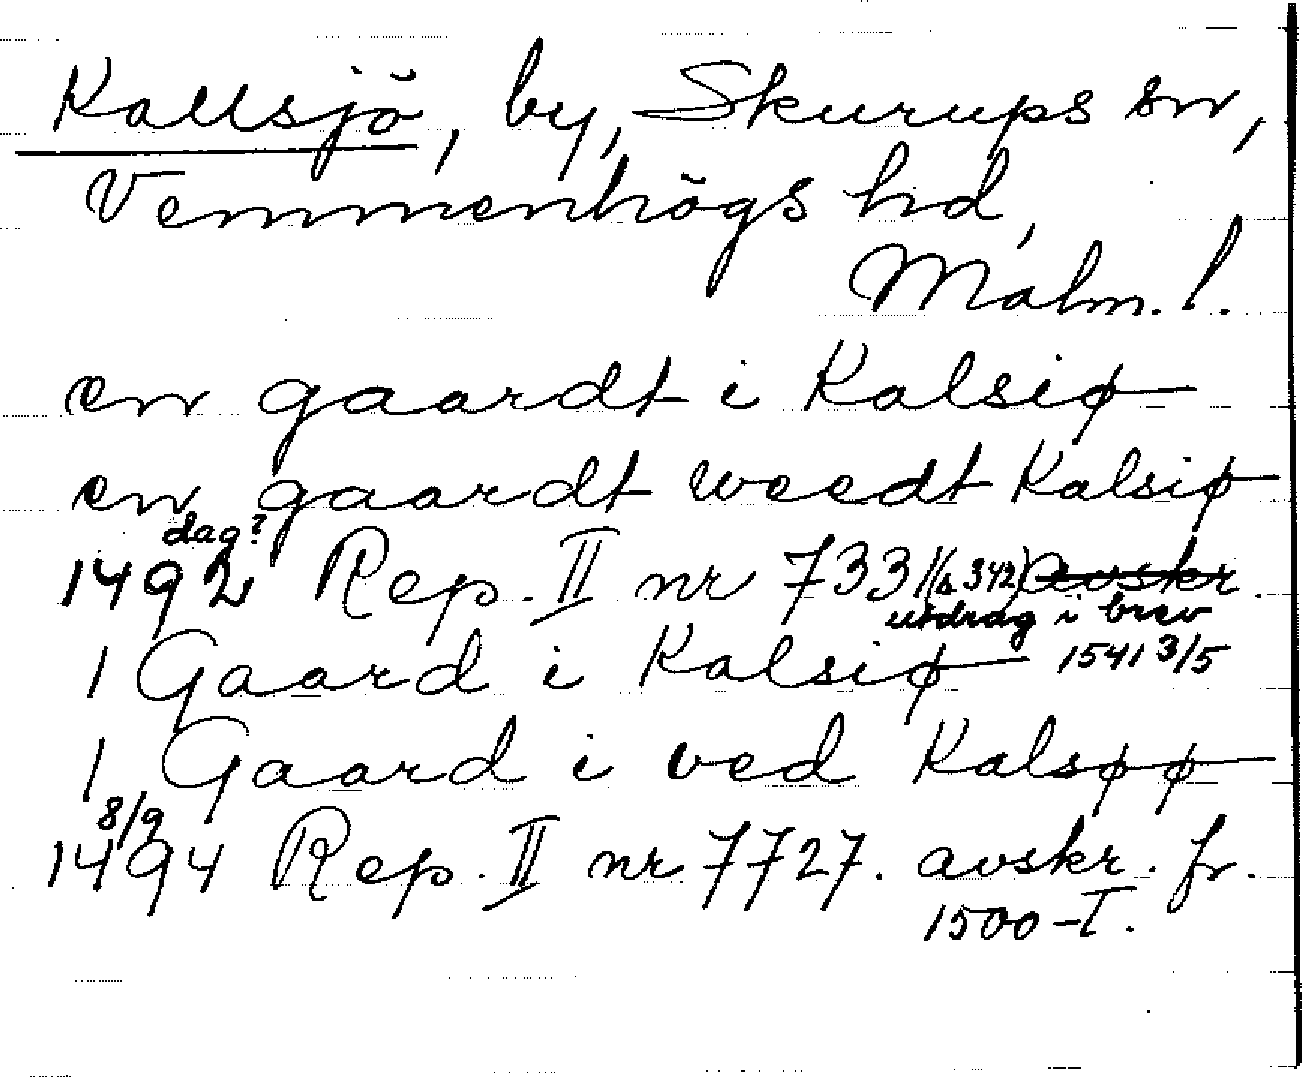 Kallsjö, by, Skurups sn,
Vemmenhögs hd,
Malm. l.
en gaardt i Kalsiø
en gaardt weedt Kalsiø
dag?
1492 Rep. II nr 7331 (s 342) avskr.
utdrag i brev
1541 3/5
1 Gaard i Kalsiø
1 Gaard i ved Kalsøø
8/9
1494 Rep. II nr 7727. avskr. fr.
1500-T.